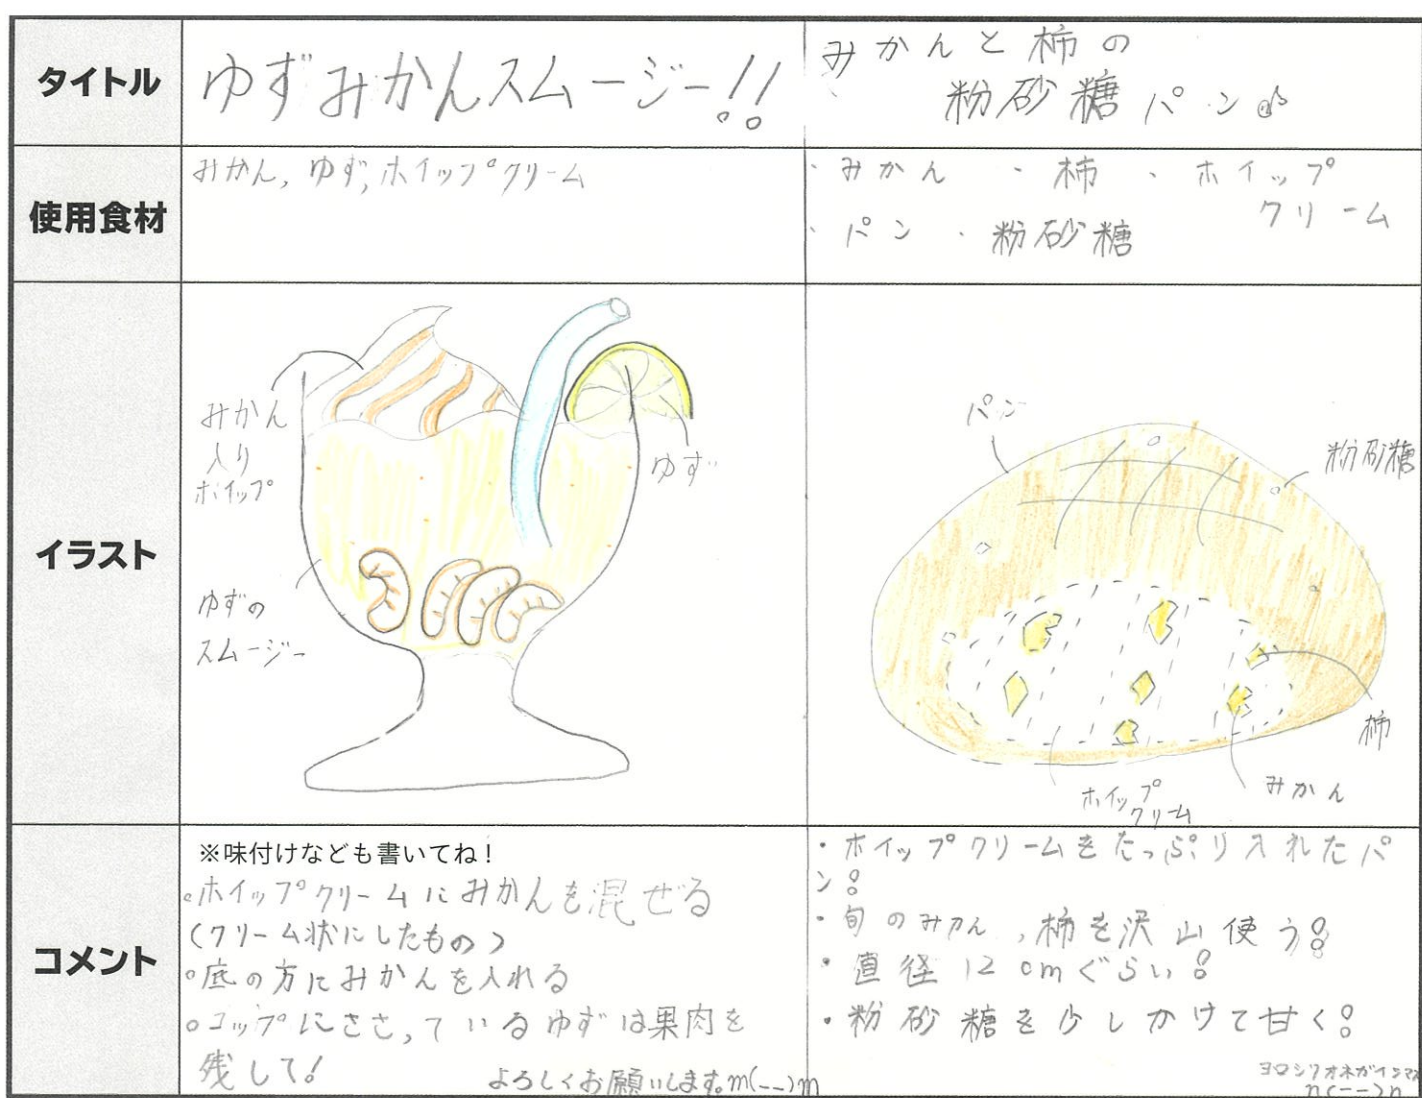 タイトル
ゆずみかんスムージー!!
みかんと柿の
粉砂糖パン♪
使用食材
みかん,ゆず,ホイップクリーム
・みかん ・柿 ・ホイップ
クリーム
・パン ・粉砂糖
イラスト
みかん
入り
ホイップ
ゆず
ゆずの
スムージー
パン
粉砂糖
柿
みかん
ホイップ
クリーム
コメント
※味付けなども書いてね!
。ホイップクリームにみかんを混ぜる
(クリーム状にしたもの)
。底の方にみかんを入れる
。コップにささっているゆずは果肉を
残して!
よろしくお願いします。m(--)m
・ホイップクリームをたっぷり入れたパ
ン!
・旬のみかん,柿を沢山使う!!
・直径12cmぐらい!
・粉砂糖を少しかけて甘く!
n(--)n